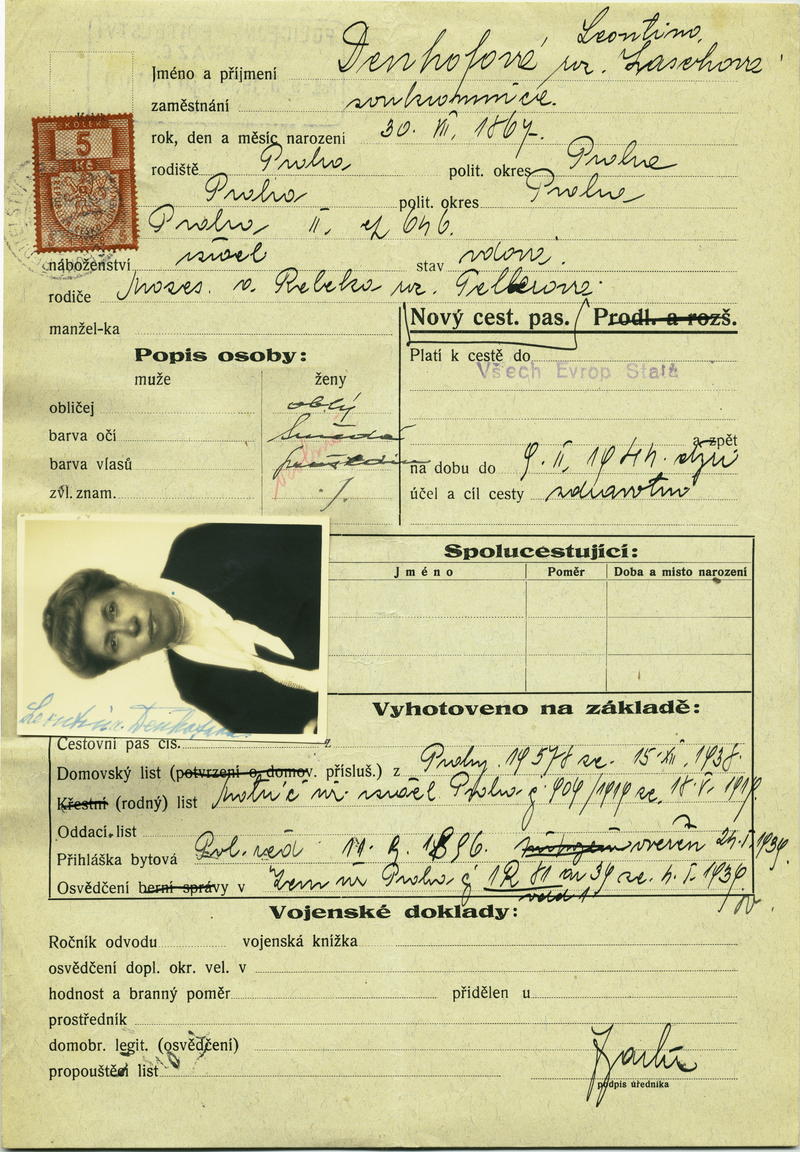 Jméno a příjmení Denhofová Leontina,
roz.
zaměstnání soukromnice.
rok, den a měsíc narození 30. VII. 1867.
rodiště Praha polit. okres Praha
Praha polit. okres Praha
Praha II. čp 646.
náboženství israel stav vdova.
rodiče Moses. a Rebeka roz.
manžel-ka
KOLEK
5
Kč
Nový cest. pas. Prodl. a rozš.
Platí k cestě do
Všech Evrop Států
a zpět
na dobu do 9. II. 1944.
účel a cíl cesty zdravotní
Popis osoby:
muže ženy
obličej oblý
barva očí hnědé
barva vlasů
zvl. znam. ./.
Spolucestující:
Jméno Poměr Doba a místo narození
Leontina Denhofová
Vyhotoveno na základě:
Cestovní pas čís. z
Domovský list (potvrzení o domov. přísluš.) z Prahy 19578 ze 15. XII. 1938.
Křestní (rodný) list israel Praha č 909/1919 ze 18. V. 1919.
Oddací list
Přihláška bytová Pol. řed 1896. ověřen 24. I. 1939
Osvědčení berní správy v Praha č ze 4. I. 1939
Vojenské doklady:
Ročník odvodu vojenská knížka
osvědčení dopl. okr. vel. v
hodnost a branný poměr přidělen u
prostředník
domobr. legit. (osvědčení)
propouštěcí list
podpis úředníka